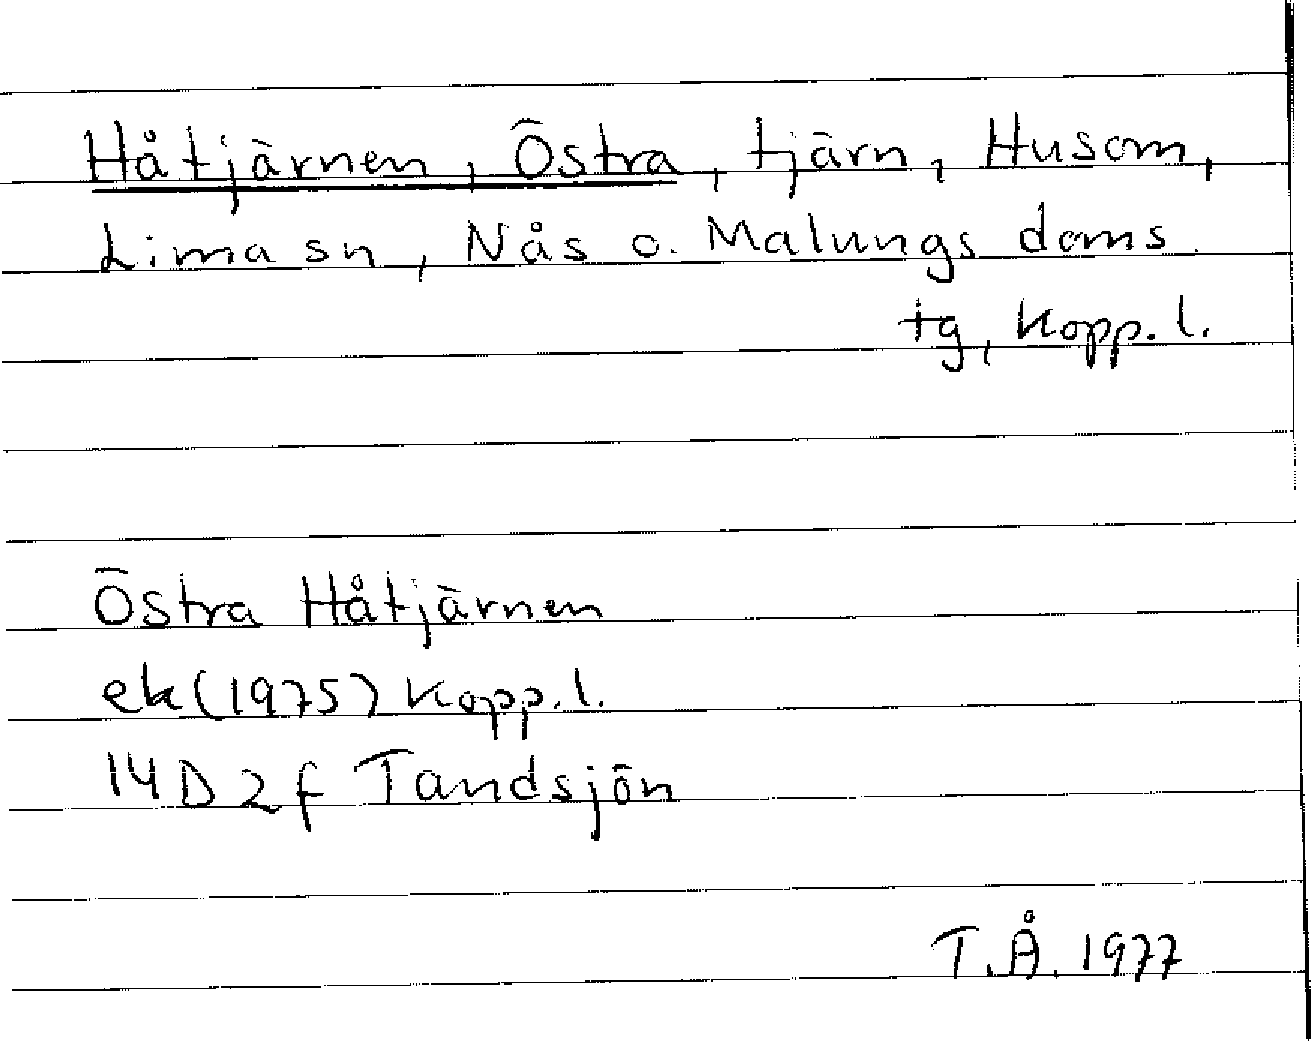 Håtjärnen, Östra, tjärn, Husom,
Lima sn, Nås o. Malungs doms.
tg, Kopp. l.
Östra Håtjärnen
ek (1975) Kopp. l.
14 D 2 f Tandsjön
T.Å. 1977